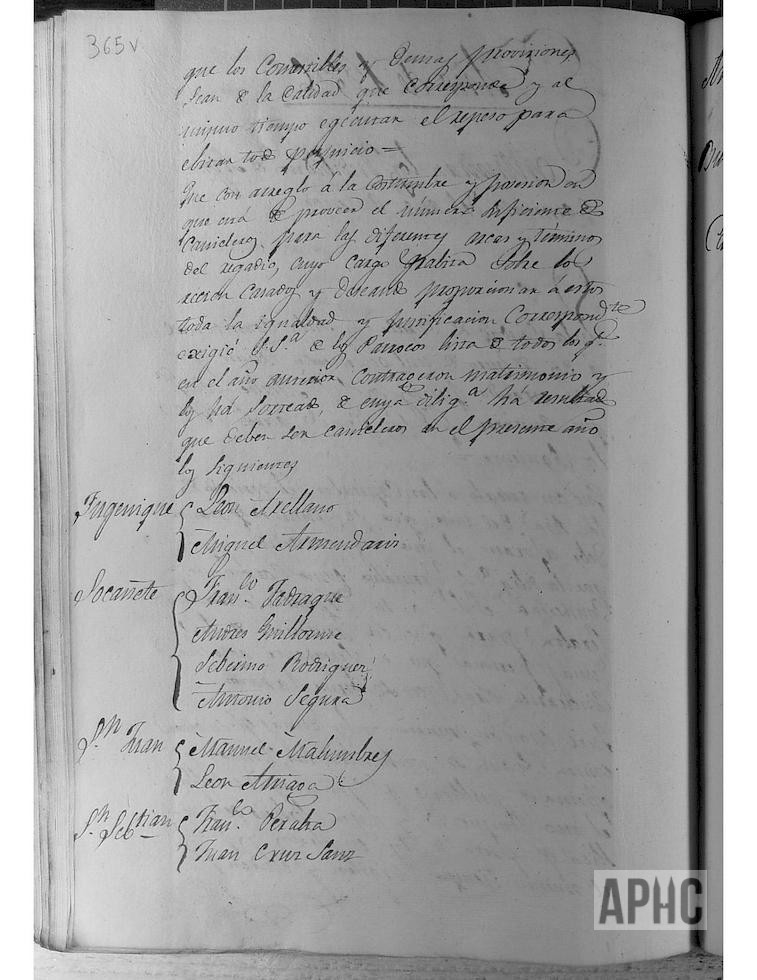 365v
que los Comestibles y demas provisiones
sean de la calidad que corresponde y al
mismo tiempo egecutar el repeso para
ebitar todo perjuicio =
Que con arreglo á la costumbre y posesion en
que está de proveer el numero suficiente de
Cauieleros para las diferentes arcas y términos
del regadio, cuyo cargo grabita sobre los
recien casados y deseando proporcionar a estos
toda la igualdad y justificacion Correspond.te
exigió S.Sª de los Parrocos lista de todos los q.e
en el año anterior contrageron matrimonio y
los ha sorteado, de cuya dilig.ª ha resultado
que deben ser cauieleros en el presente año
los siguientes
Leon Arellano
Miguel Armendariz
Socañete
Fran.co Jadraque
Andres Guillorme
Seberino Rodriguez
Antonio Segura
S.n Juan
Manuel Malumbres
Leon Arriaga
S.n Sebtian
Fran.co Peralta
Juan Cruz Sanz
APHC